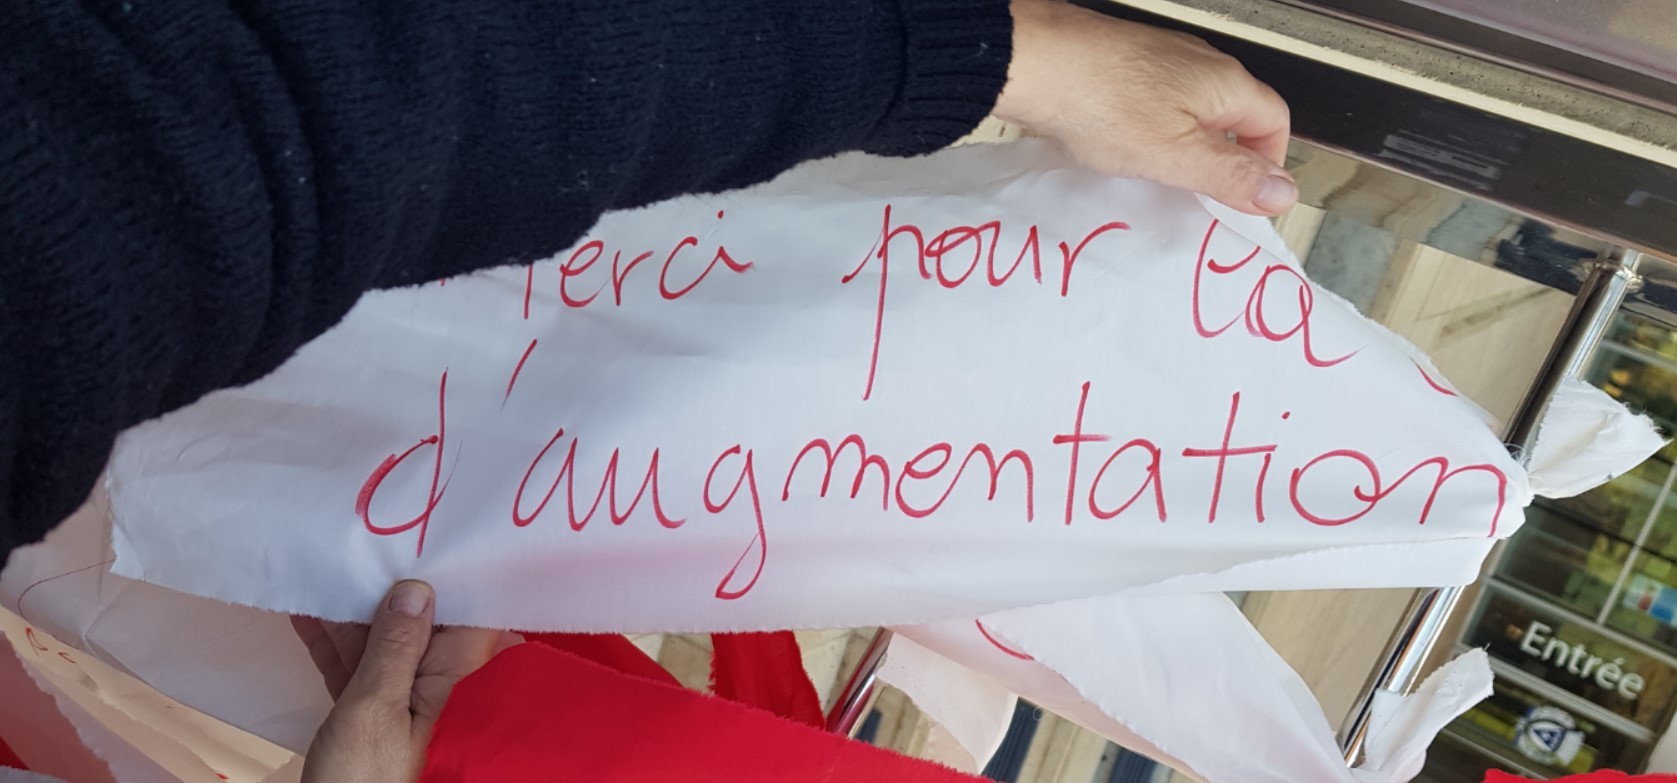 Merci pour la
d'augmentation
Entrée